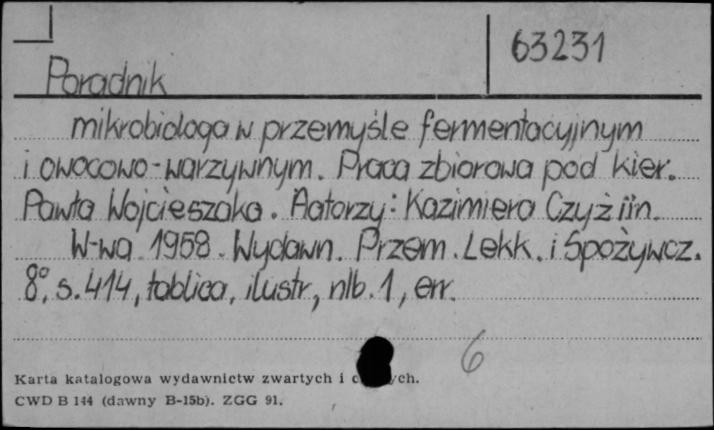 63231
Poradnik
mikrobiologa w przemyśle fermentacyjnym
i owocowo-warzywnym. Praca zbiorowa pod kier.
Pawła Wojcieszaka. Autorzy: Kazimiera Czyż iin.
W-wa 1958. Wydawn. Przem. Lekk. i Spożywcz.
8°, s. 414, tablica, ilustr, nlb. 1, err.
6
Karta katalogowa wydawnictw zwartych i
CWD B 144 (dawny B-15b). ZGG 91.